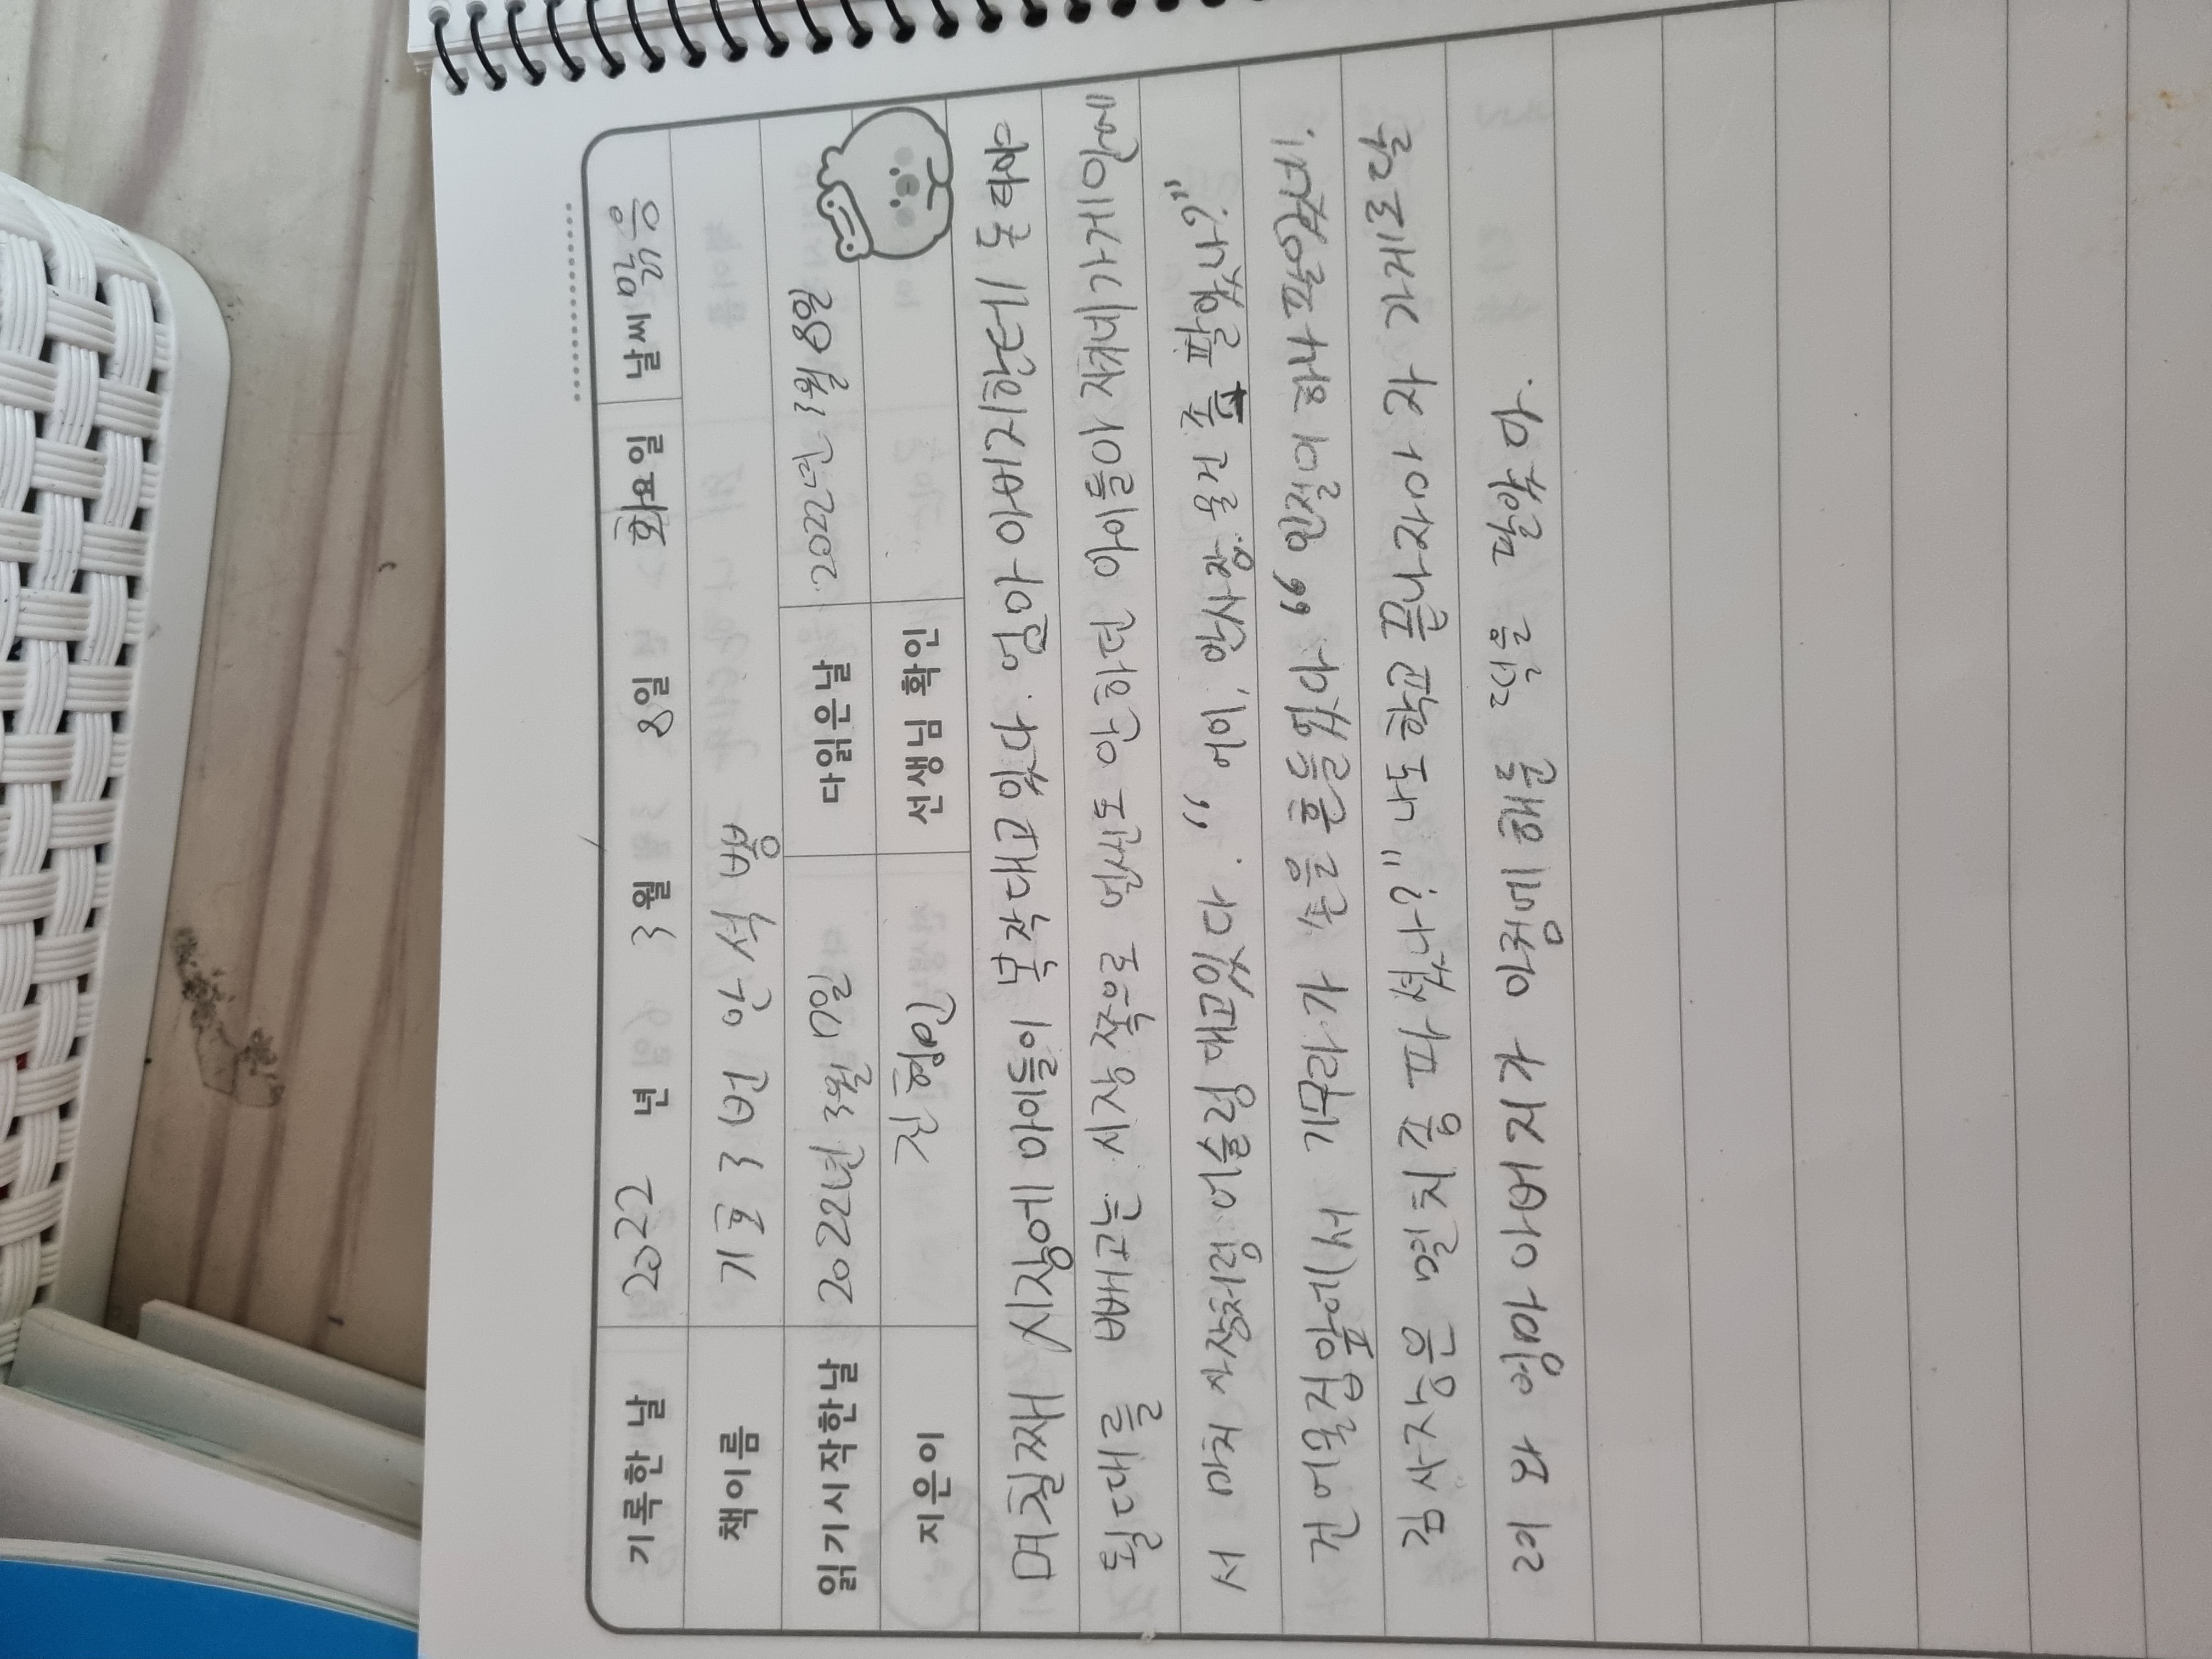 기록한 날 2022 년 3월 8일 화요일 날씨 맑음
책이름 기호 3번 안석뽕
읽기시작한날 2022년 3월 7일 다읽은날 2022년 3월 8일
지은이 진형민 선생님 확인
며칠째 시장에 아이들이 복작대고 있다. 엄마 아버지한테 돈
될때를 빼고는 시장 쪽으로 얼씬도 안하던 아이들이 저희네가게앞에
서 마치 사장처럼 어슬렁대고있다. “어이, 안사장. 물건 좀 팔았나?”
건어물집앞에서 기무라가 손을 흔들었다 “인절미 하나 팔았네!.
김사장은 멸치좀 파셨나?” 나도 학교 끝나자마 자 가게로달
려 와 엄마아버지가 아침에 해둔 떡을 팔았다.